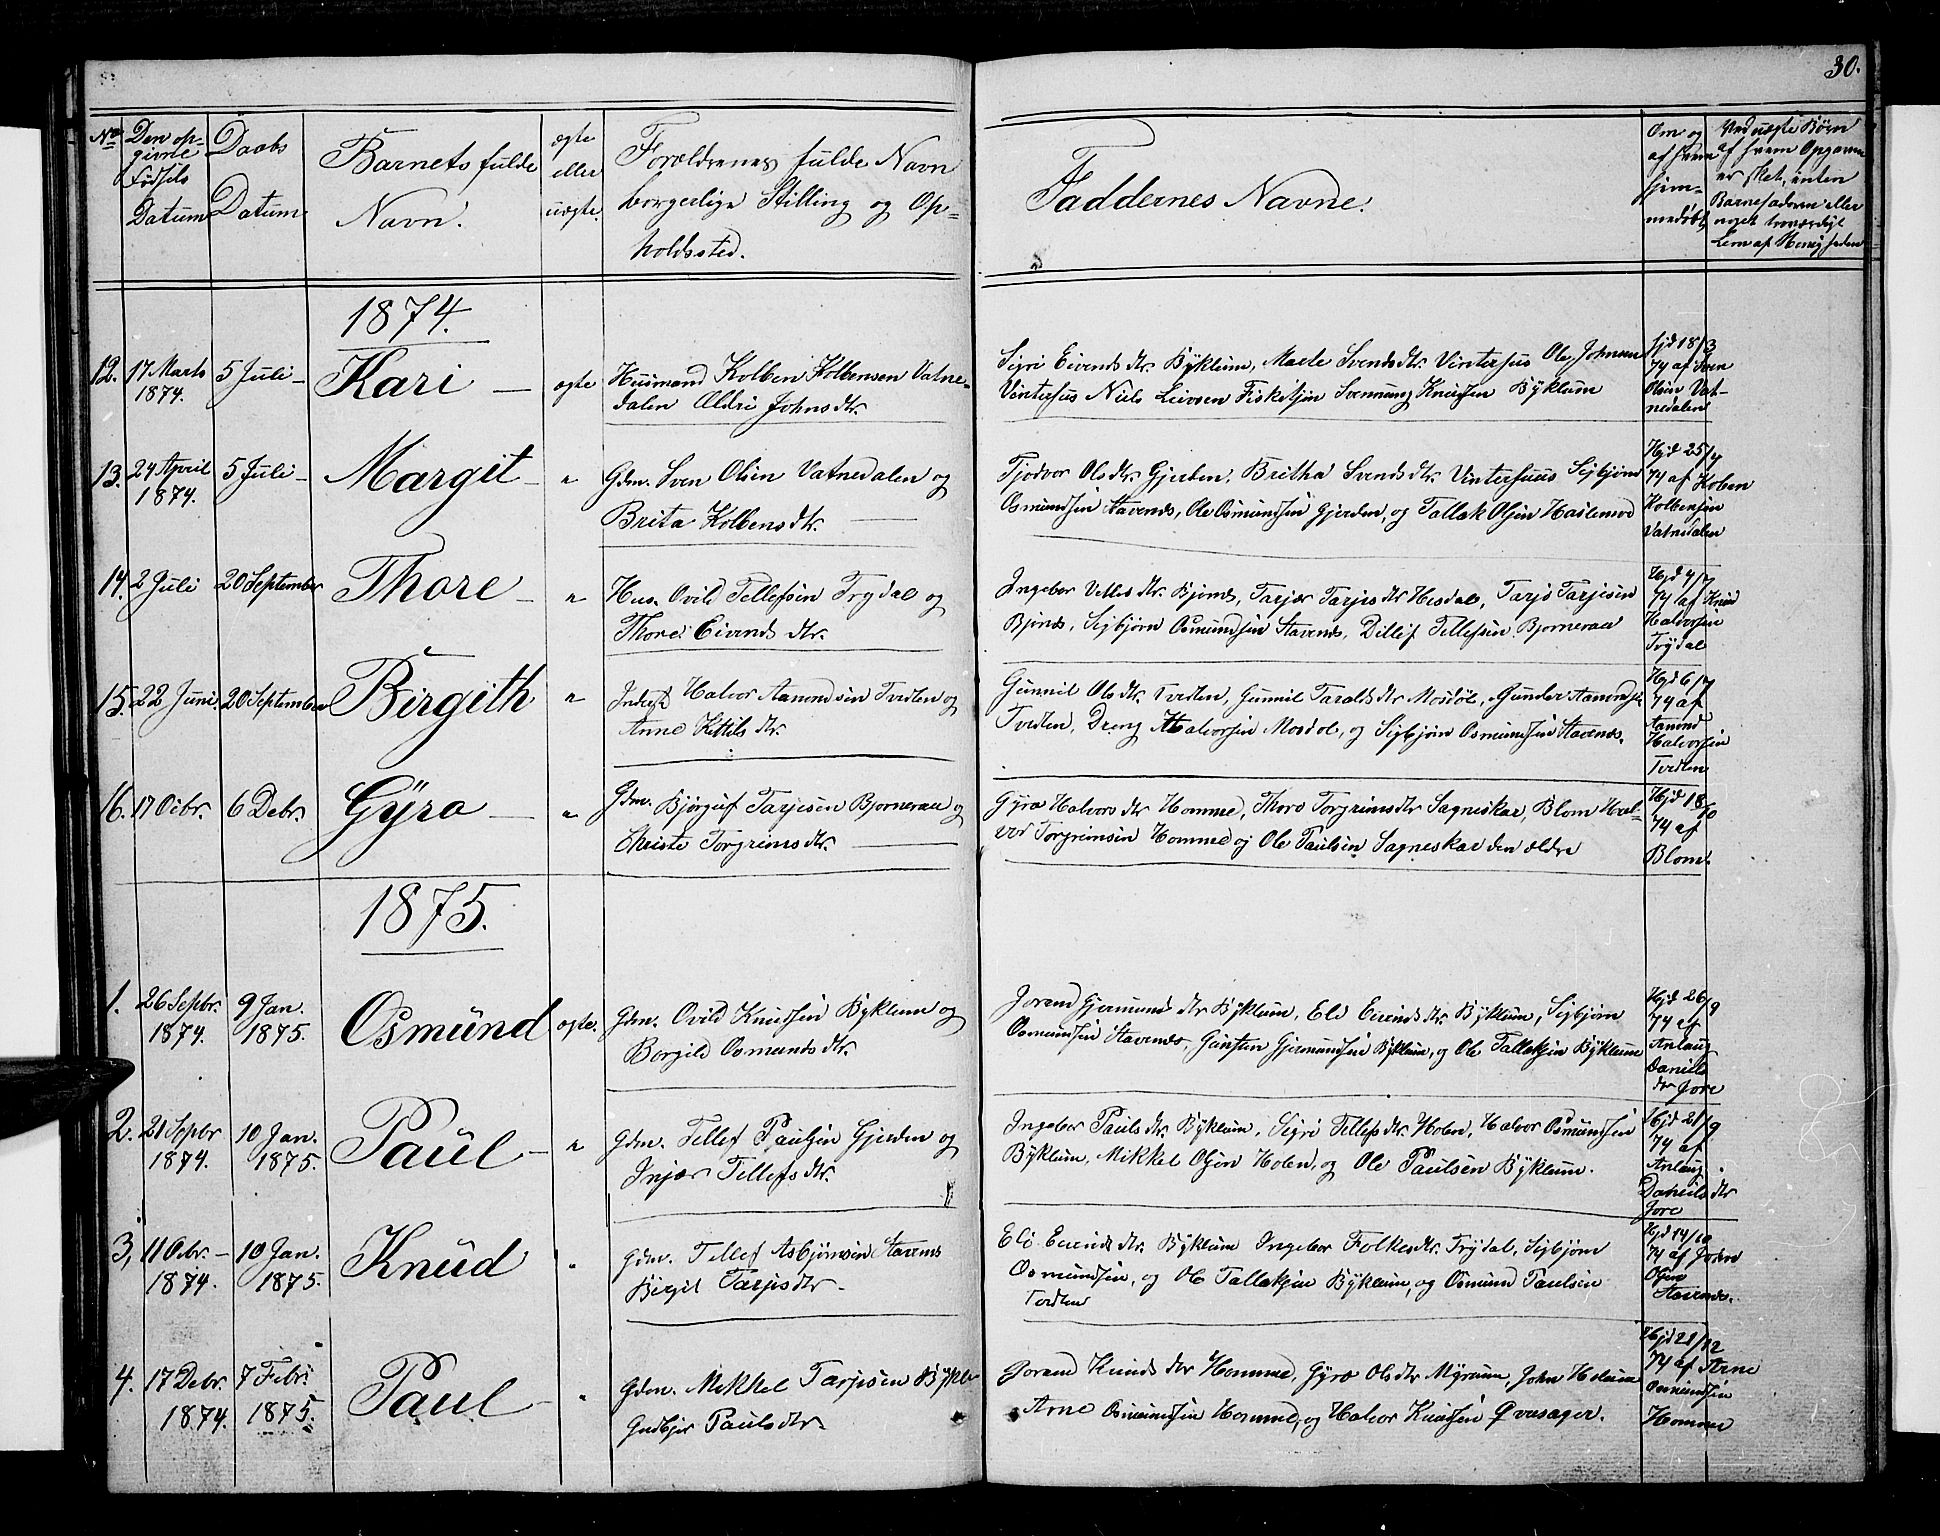 30.
No
Den op-
givne
Fødsels
Datum
Daabs
Datum
Barnets fulde
Navn.
ægte
eller
uægte.
Forældrenes fulde Navn
borgerlige Stilling og Op-
holdssted.
Faddernes Navne.
Om og
af hvem
hjem-
medøbt
Ved uægte Børn
af hvem Opgaven
er sket, enten
Barnefaderen eller
noget troværdigt
Lem af Menigheden
1874.
12. 17 Marts 5 Juli - Kari - ægte Husmand Kolben Kolbensen Vatne-
1874. dalen Aldri Johns dtr.
Sigri Eivends dtr. Byklum, Svends dtr. Vintersus Ole Johnsen
Vintersus Niels Leivsen Fisketjøn Svennung Knudsen Byklum
hjd 18/3
74 af Sven
Olsen Vat-
nedalen
13. 24 April 5 Juli - Margit - " Gdm. Sven Olsen Vatnedalen og
1874. Brita Kolbens dtr.
Tjodvor Ols dtr. Gjerden, Britha Svends dtr. Vintersuus Sigbjørn
Osmundsen Stavenes, Ole Osmundsen Gjerden, og Tallak Olsen Haslemo
Hjd 25/4
74 af Kolben
Kolbensen
Vatnedalen
14. 2 Juli 20 September Thore - " Hus. Ovild Tellefsen Trydal og
Thore Eivends dtr.
Ingebor Villes dtr. Bjønes, Tarjer Tarjes dtr Hesdal, Tarje Tarjesen
Bjønes, Sigbjørn Osmundsen Stavenes, Ditlef Tellefsen Bjorneraa
Hjd 4/7
74 af Knud
Halvorsen
Trydal
15. 22 Juni 20 September Birgith " Inderst Halvor Aamondsen Tvedten og
Anne Kittils dtr.
Gunnil Ols dtr. Tvedten, Gunnil Taralds dtr. Mosdøl, Gunder Aamondsen
Tvedten, Dreng Halvorsen Mosdøl, og Sigbjørn Osmundsen Stavenes.
Hjd 6/7
74 af
Aamond
Halvorsen
Tvedten
16. 17 Octbr. 6 Debr. Gyro - " Gdm. Bjørguf Tarjesen Bjorneraa og
Christe Torgrims dtr.
Gyro Halvors dtr Homme, Thoro Torgrims dtr Sagneskar, Blom Hal-
vor Torgrimsen Homme og Ole Paulsen Sagneskar den ældre
Hjd 18/10
74 af
Blom
1875.
1. 26 Sepbr. 9 Jan. Osmund ægte. Gdm. Ovild Knudsen Byklum og
1874. 1875. Borgild Osmunds dtr.
Jorand Gjermund dtr Byklum, Eli Eivends dtr. Byklum, Sigbjørn
Osmundsen Stavenes, Gunsten Gjermundsen Byklum, og Ole Tallaksen Byklum
Hjd 26/9
74 af
Anlaug
Daniels
dtr Jore
2. 21 Sepbr 10 Jan. Paul - " Gdm. Tellef Paulsen Gjerden og
1874. 1875. Injær Tellefs dtr.
Ingebor Pauls dtr. Byklum, Sigri Tellefs dtr. Holen, Halvor Osmundsen
Byklum, Mikkel Olsen Holen, og Ole Paulsen Byklum.
Hjd 21/9
74 af
Anlaug
Daniels dtr
Jore
3, 11 Octbr. - 10 Jan. Knud " Gdm. Tellef Asbjørnsen Stavenes
1874. 1875. Birgit Tarjes dtr -
Eli Eivends dtr. Byklum Ingebor Folkes dtr. Trydal, Sigbjørn
Osmundsen, og Ole Tallaksen Byklum, og Osmund Paulsen
Tvedten
Hjd 14/10
74 af John
Olsen
Stavenes.
4. 17 Debr. 7 Febr. Paul - " Gdm. Mikkel Tarjesen Bykle-
1874. 1875. Gudbjør Pauls dtr.
Jorand Knuds dtr Homme, Gyro Ols dtr Myrum, John
Arne Osmundsen Homme, og Halvor Knudsen Qvasager.
Hjd 21/12
74 af Arne
Osmundsen
Homme